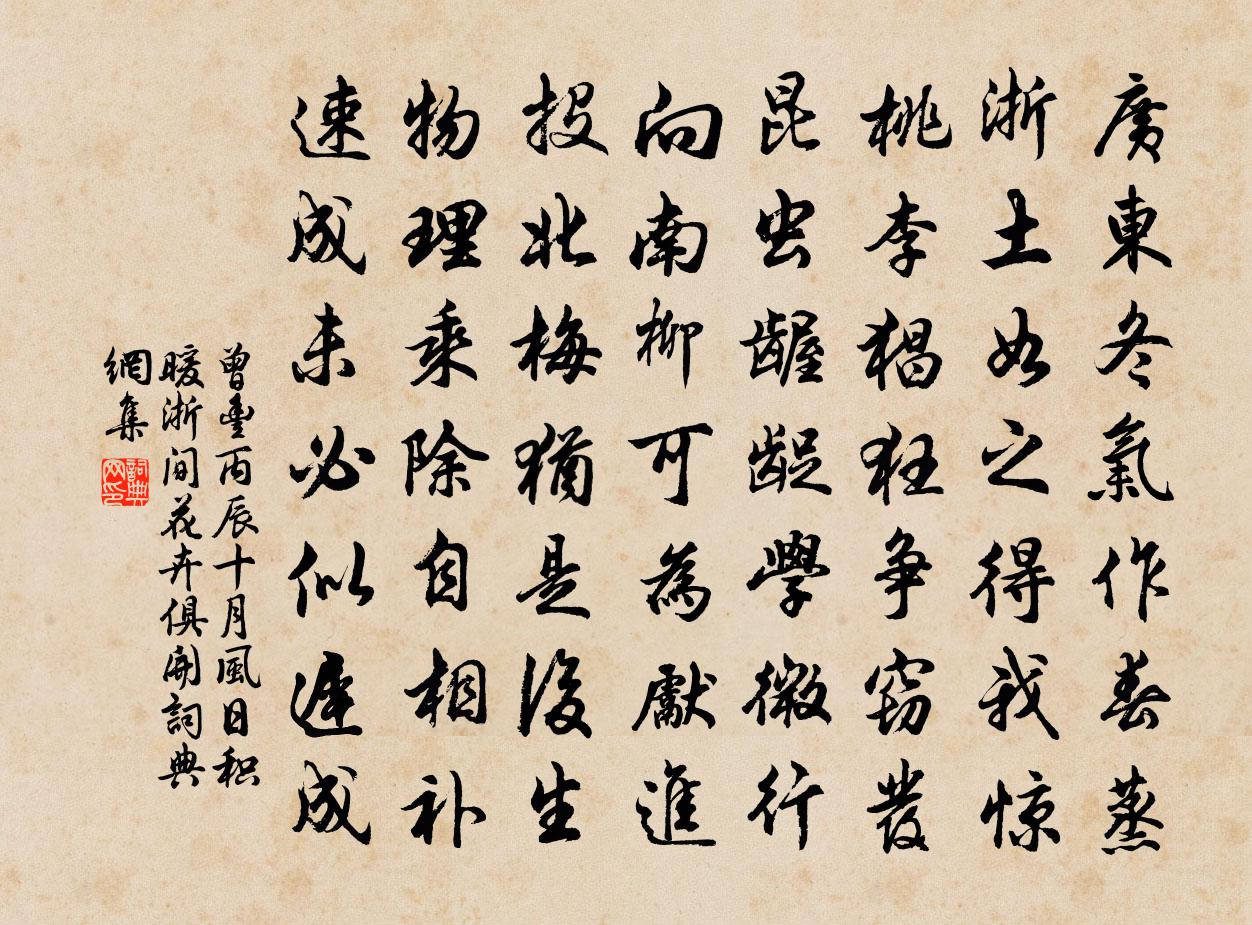 廣東冬氣作春蒸
淅土如之得我惊
桃李猖狂争竊發
昆虫齷齪學微行
向南柳可為獻進
投北梅猶是後生
物理乘除自相补
速成未必似遲成
曾豊丙辰十月風日积
暖淅间花卉俱開詞典
網集
詞典网印